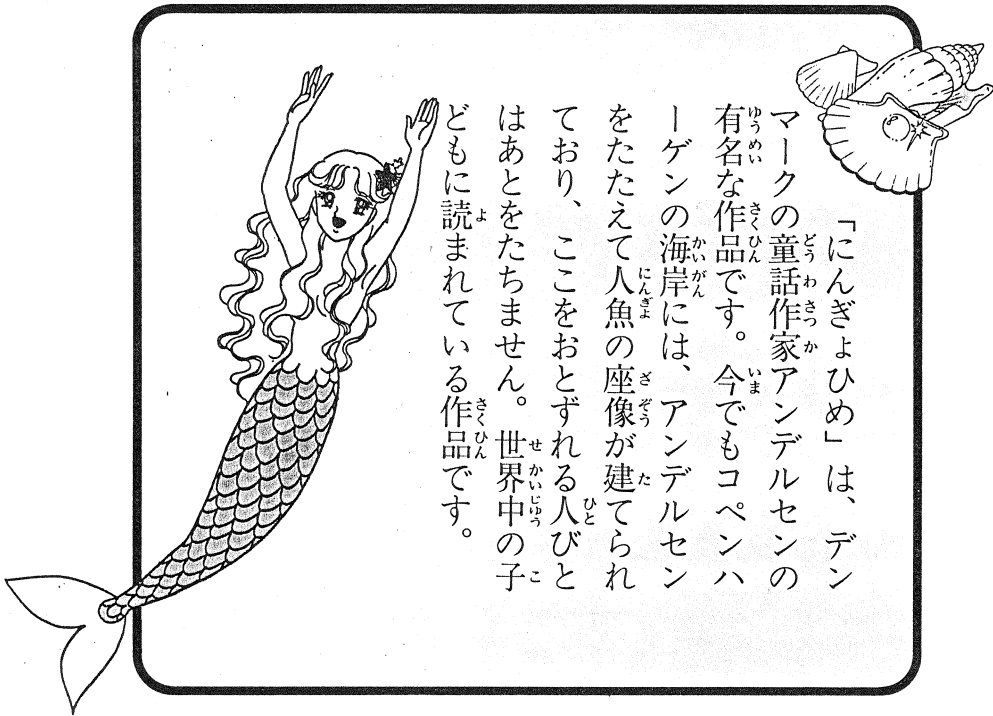 「にんぎょひめ」は、デン
マークの童話作家アンデルセンの
有名な作品です。今でもコペンハ
ーゲンの海岸には、アンデルセン
をたたえて人魚の座像が建てられ
ており、ここをおとずれる人びと
はあとをたちません。世界中の子
どもに読まれている作品です。